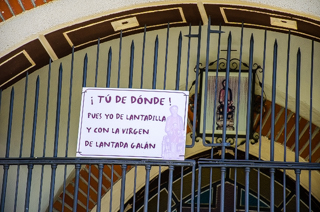 ¡TÚ DE DÓNDE!
PUES YO DE LANTADILLA
Y CON LA VIRGEN
DE LANTADA GALÁN